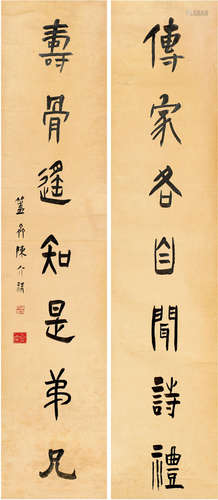 傳家各自聞詩禮
壽骨遙知是弟兄
簠齋陳介祺